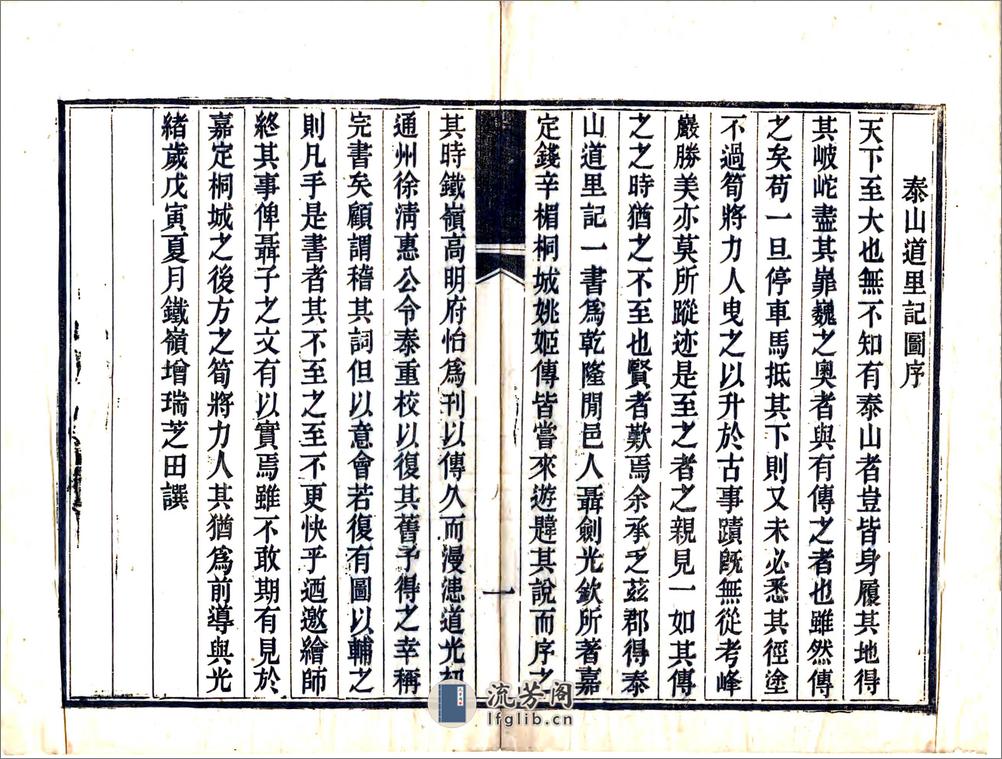 泰山道里記圖序
天下至大也無不知有泰山者豈皆身履其地得
其岐嵯盡其罪巍之奧者與有傳之者也雖然傳
之矣苟一旦停車馬抵其下則又未必悉其徑塗
不過筍將力人曳之以升於古事蹟旣無從考峰
巖勝美亦莫所蹤迹是至之者之親見一如其傳
之之時猶之不至也賢者歎焉余承乏茲郡得泰
山道里記一書爲乾隆閒邑人聶劍光欽所著嘉
定錢辛楣桐城姚姬傳皆嘗來遊韙其說而序之
一
其時鐵嶺高明府怡爲刊以傳久而漫漶道光初
通州徐清惠公令泰重校以復其舊予得之幸稱
完書矣顧謂稽其詞但以意會若復有圖以輔之
則凡手是書者其不至之至不更快乎迺邀繪師
終其事俾聶子之文有以實焉雖不敢期有見於
嘉定桐城之後方之筍將力人其猶爲前導與光
緒歲戊寅夏月鐵嶺增瑞芝田譔
流芳阁
lfglib.cn